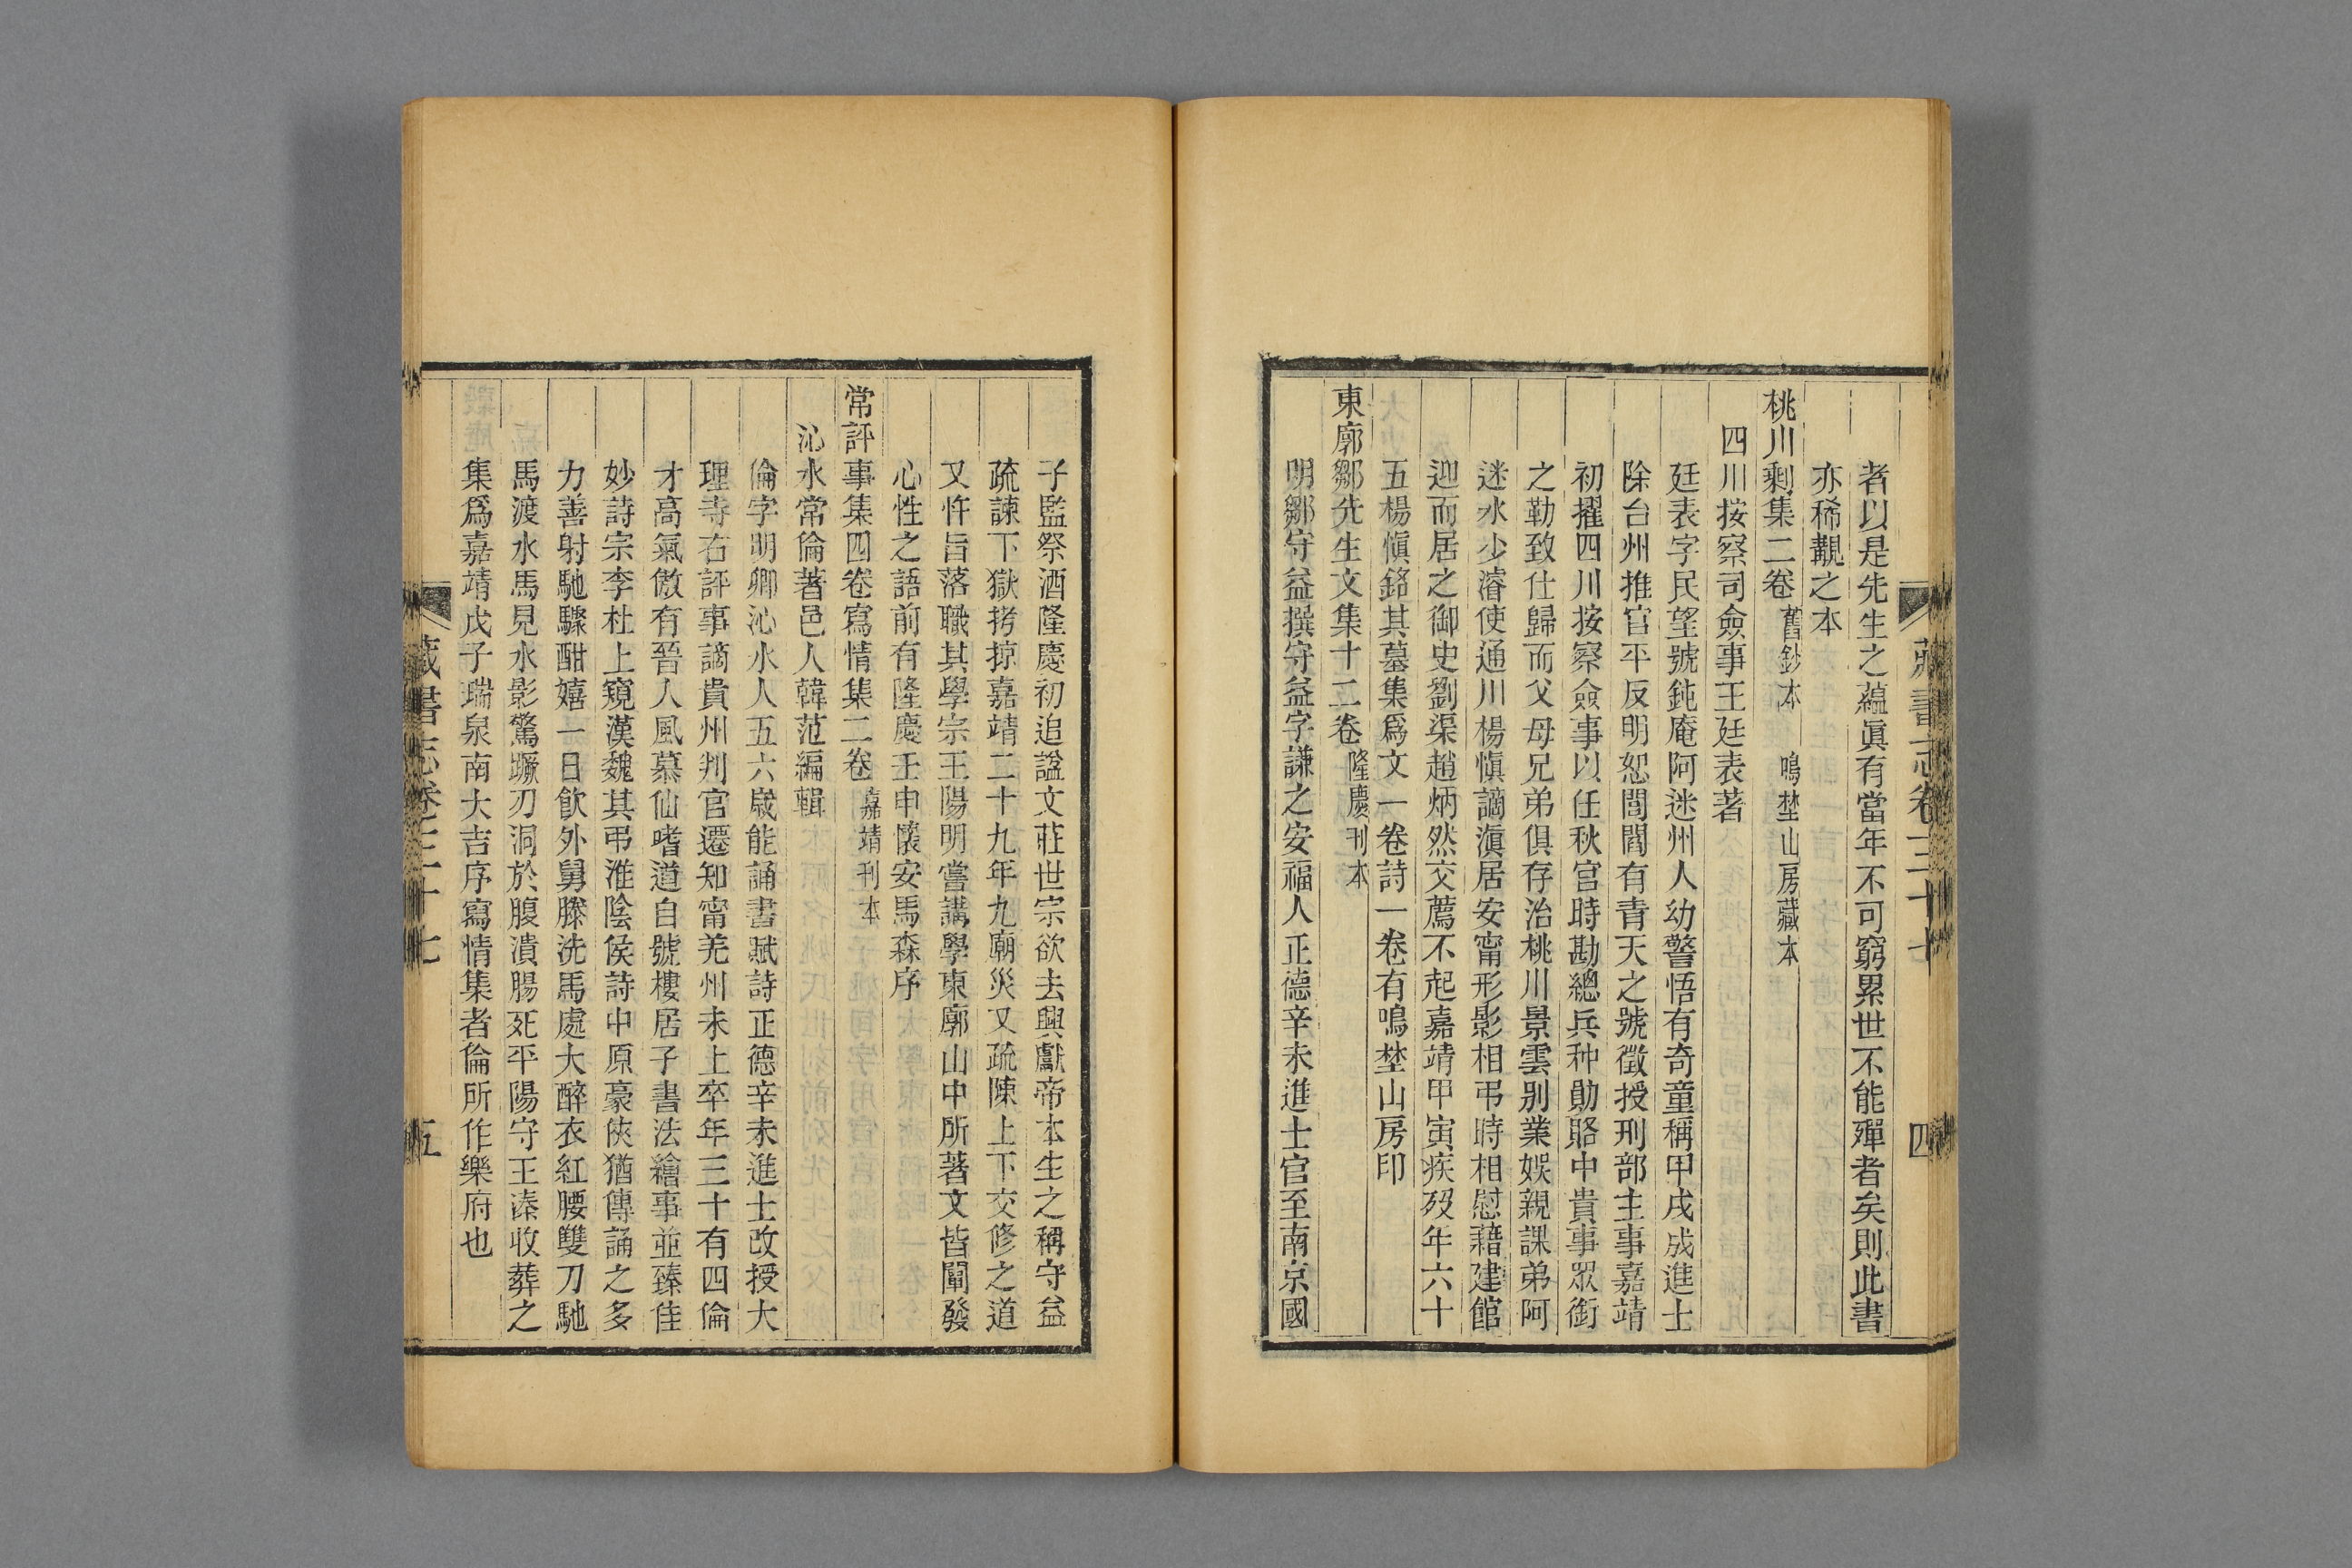 藏書志卷三十七
四
者以是先生之蘊眞有當年不可窮累世不能殫者矣則此書
亦稀覯之本
桃川剩集二卷 舊鈔本 鳴埜山房藏本
四川按察司僉事王廷表著
廷表字民望號鈍庵阿迷州人幼警悟有奇童稱甲戌成進士
除台州推官平反明恕閭閻有青天之號徵授刑部主事嘉靖
初擢四川按察僉事以任秋官時勘總兵种勛賂中貴事眾銜
之勒致仕歸而父母兄弟俱存治桃川景雲别業娛親課弟阿
迷水少濬使通川楊愼謫滇居安甯形影相弔時相慰藉建館
迎而居之御史劉渠趙炳然交薦不起嘉靖甲寅疾歿年六十
五楊愼銘其墓集爲文一卷詩一卷有鳴埜山房印
東廓鄒先生文集十二卷 隆慶刊本
明鄒守益撰守益字謙之安福人正德辛未進士官至南京國
子監祭酒隆慶初追諡文莊世宗欲去興獻帝本生之稱守益
疏諫下獄拷掠嘉靖二十九年九廟災又疏陳上下交修之道
又忤旨落職其學宗王陽明嘗講學東廓山中所著文皆闡發
心性之語前有隆慶壬申懷安馬森序
常評事集四卷寫情集二卷 嘉靖刊本
沁水常倫著邑人韓范編輯
倫字明卿沁水人五六歲能誦書賦詩正德辛未進士改授大
理寺右評事謫貴州判官遷知甯羌州未上卒年三十有四倫
才高氣傲有晉人風慕仙嗜道自號樓居子書法繪事並臻佳
妙詩宗李杜上窺漢魏其弔淮陰侯詩中原豪俠猶傳誦之多
力善射馳驟酣嬉一日飮外舅滕洗馬處大醉衣紅腰雙刀馳
馬渡水馬見水影驚蹶刃洞於腹潰腸死平陽守王溱收葬之
集爲嘉靖戊子瑞泉南大吉序寫情集者倫所作樂府也
藏書志卷三十七
五